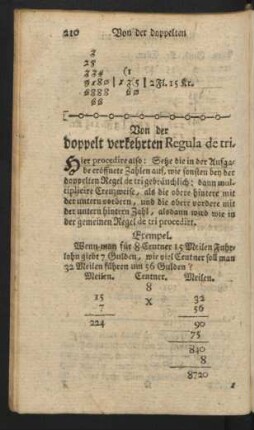 210 Von der doppelten
2
25
234 (1
9180 | 135 | 2 Fl. 15 Kr.
6888 60
66
Von der
doppelt verkehrten Regula de tri.
Hier procedire also: Setze die in der Aufga-
be eröffnete Zahlen auf, wie sonsten bey der
doppelten Regel de tri gebräuchlich: dann mul-
tiplicire Creuzweise, als die obere hintern mit
der untern vordern, und die obere vordere mit
der untern hintern Zahl, alsdann wird wie in
der gemeinen Regel de tri procedirt.
Exempel.
Wenn man für 8 Centner 15 Meilen Fuhr-
lohn giebt 7 Gulden, wie viel Centner soll man
32 Meilen führen um 56 Gulden?
Meilen. Centner. Meilen.
8
15 x 32
7 56
224 90
75
840
8
8720